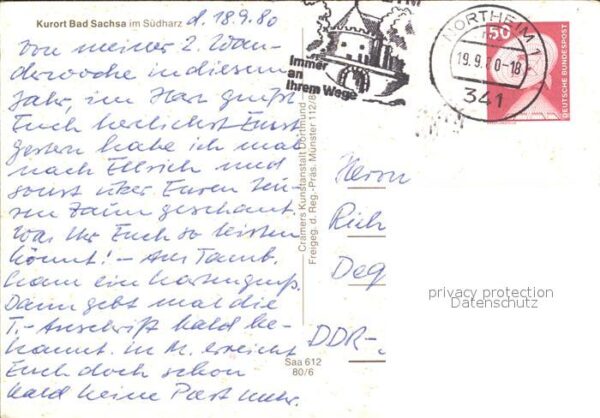 Kurort Bad Sachsa im Südharz
d. 18.9.80
Von meiner 2. Wan-
derwoche in diesem
Jahr, im Harz grüßt
Euch herzlichst Ernst
gestern habe ich mal
nach Ellrich und
sonst über Euren
Zaun geschaut.
Was Ihr Euch so leisten
könnt! – Aus Tamb.
kam ein Kartengruß.
Dann gebt mal die
T.-Anschrift bald be-
kannt. in M. erreicht
Euch doch schon
bald keine Post mehr.
Immer
an
Ihrem Wege
NORTHEIM 1
19.9. 0-18
341
50
DEUTSCHE BUNDESPOST
Cramers Kunstanstalt Dortmund
Freigeg. d. Reg.-Präs. Münster 112/8
Herrn
Rich
Deq
DDR-
privacy protection
Datenschutz
Saa 612
80/6